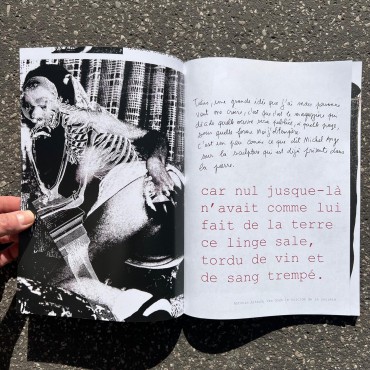 une grande idée que j'ai mais personne
veut me croire, c'est que c'est le magazine qui
décide quelle œuvre sera publiée, à quelle page,
sous quelle forme
c'est un peu comme ce que dit Michel Ange
sur la sculpture qui est déjà présente dans
la pierre.
car nul jusque-là
n'avait comme lui
fait de la terre
ce linge sale,
tordu de vin et
de sang trempé.